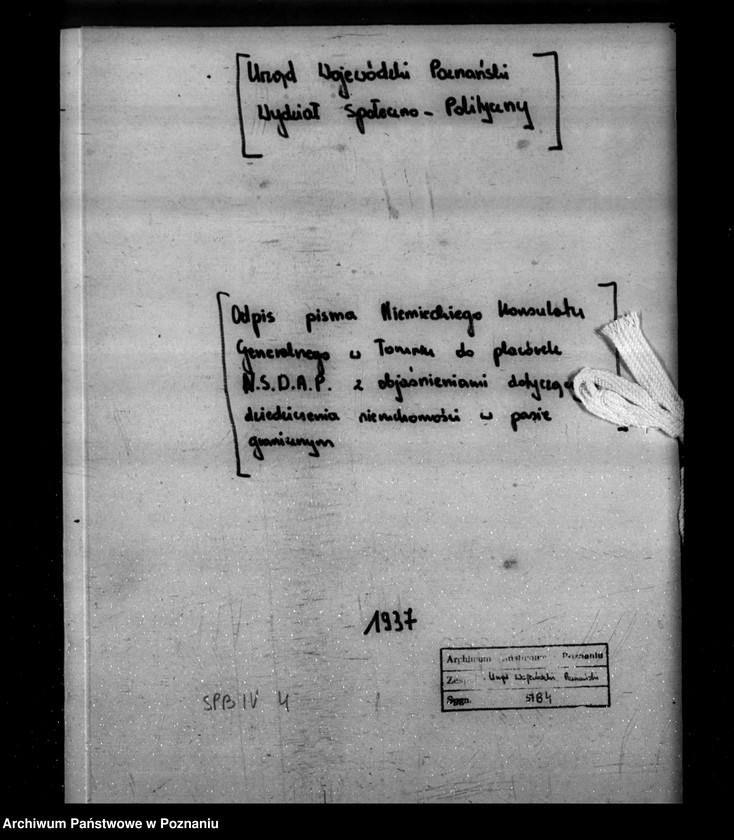 [Urząd Wojewódzki Poznański
Wydział Społeczno-Polityczny]
[Odpis pisma Niemieckiego Konsulatu
Generalnego w Toruniu do placówek
N.S.D.A.P. z objaśnieniami dotycząc
dziedziczenia nieruchomości w pasie
granicznym
1937
Archiwum Państwowe Poznaniu
Urząd Wojewódzki Poznański
Sygn. 5184
SPB IV 4
Archiwum Państwowe w Poznaniu